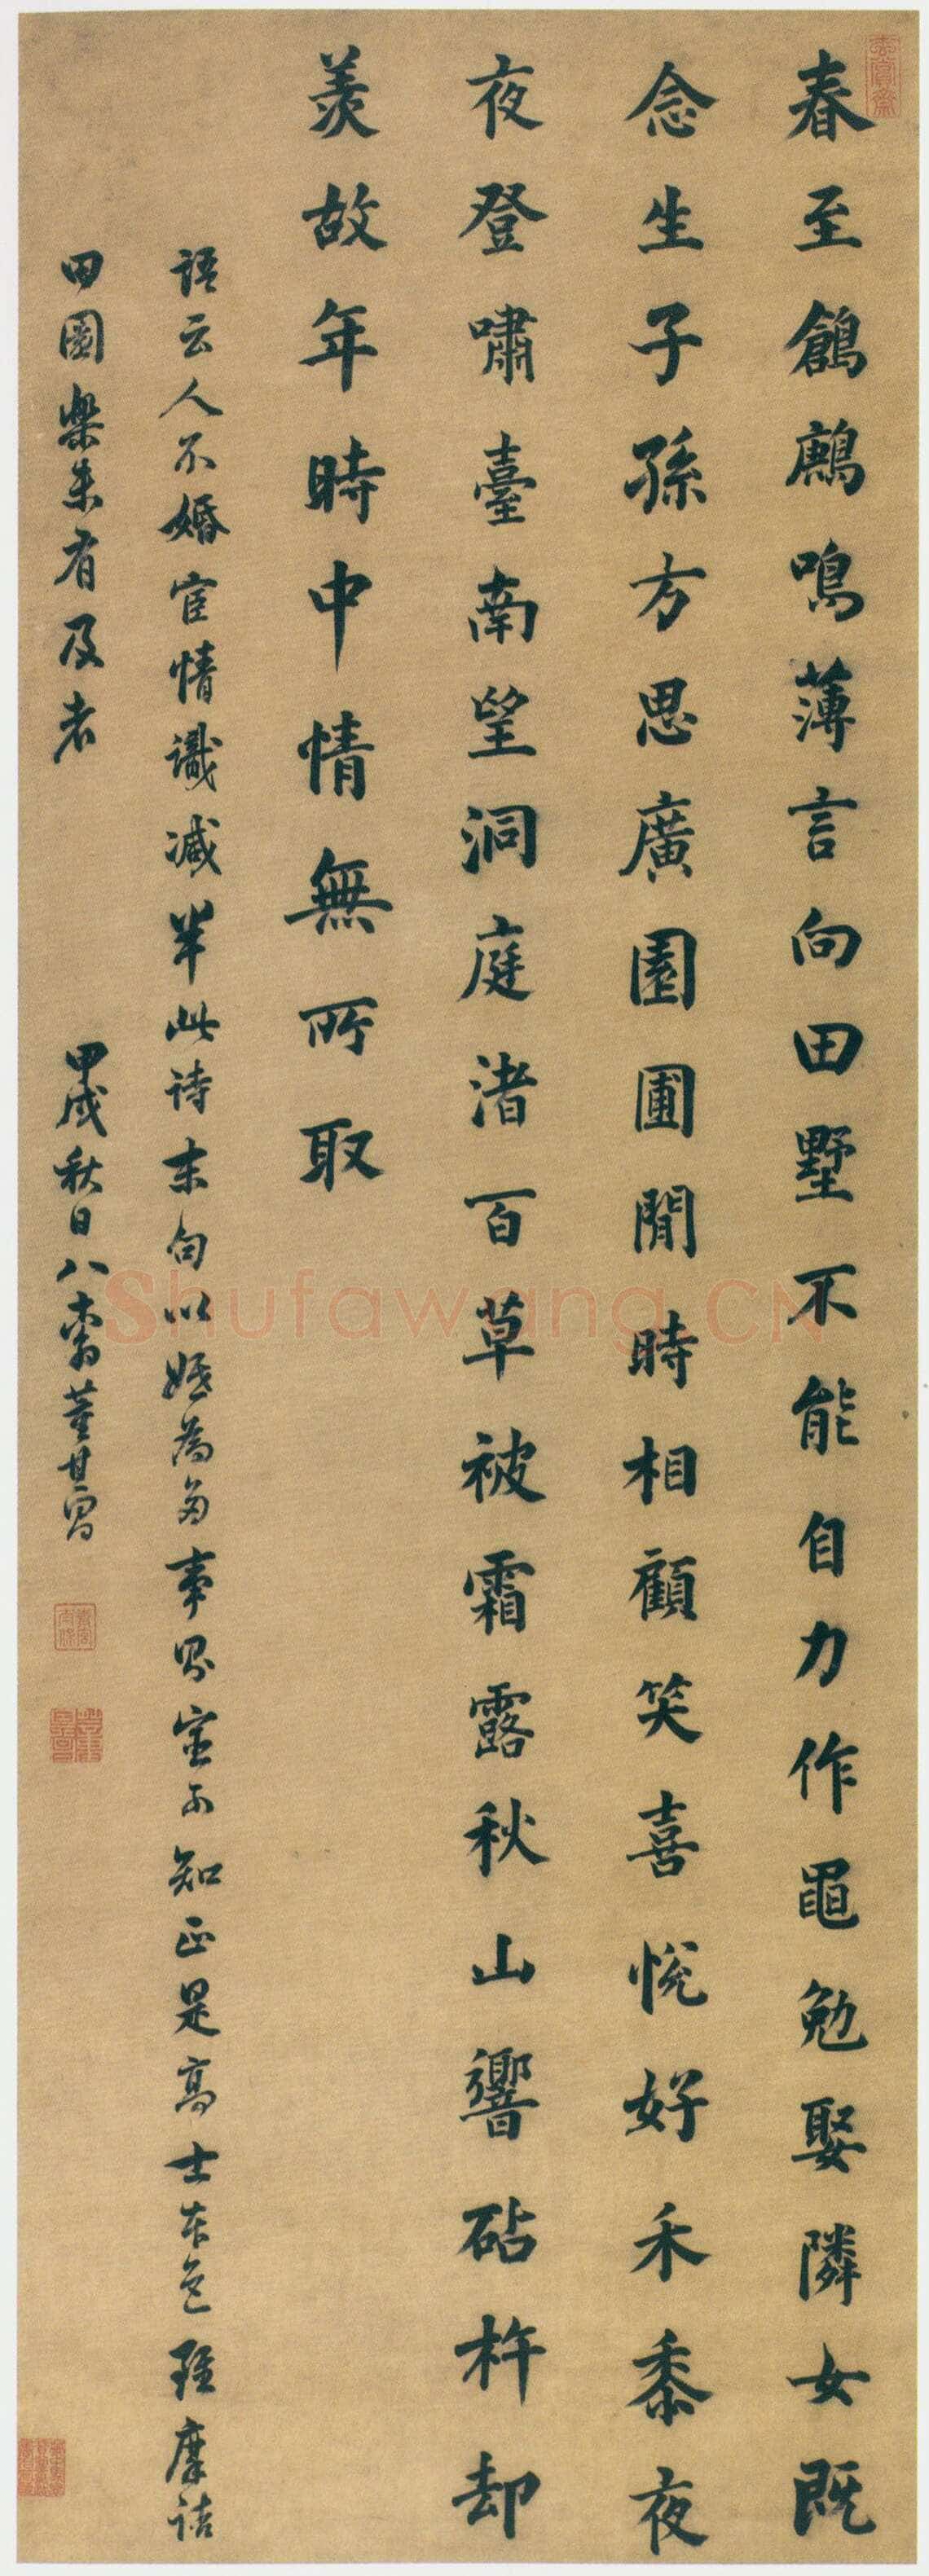 玄賞齋
春至鶬鶊鳴薄言向田墅不能自力作黽勉娶隣女既
念生子孫方思廣園圃閒時相顧笑喜悅好禾黍夜
夜登嘯臺南望洞庭渚百草被霜露秋山響砧杵却
羨故年時中情無所取
語云人不婚宦情識減半此詩末句以婚為多事不知正是高士本色雖摩詰
田園樂未有及者 甲戌秋日八十翁董其昌
Shufawang.CN